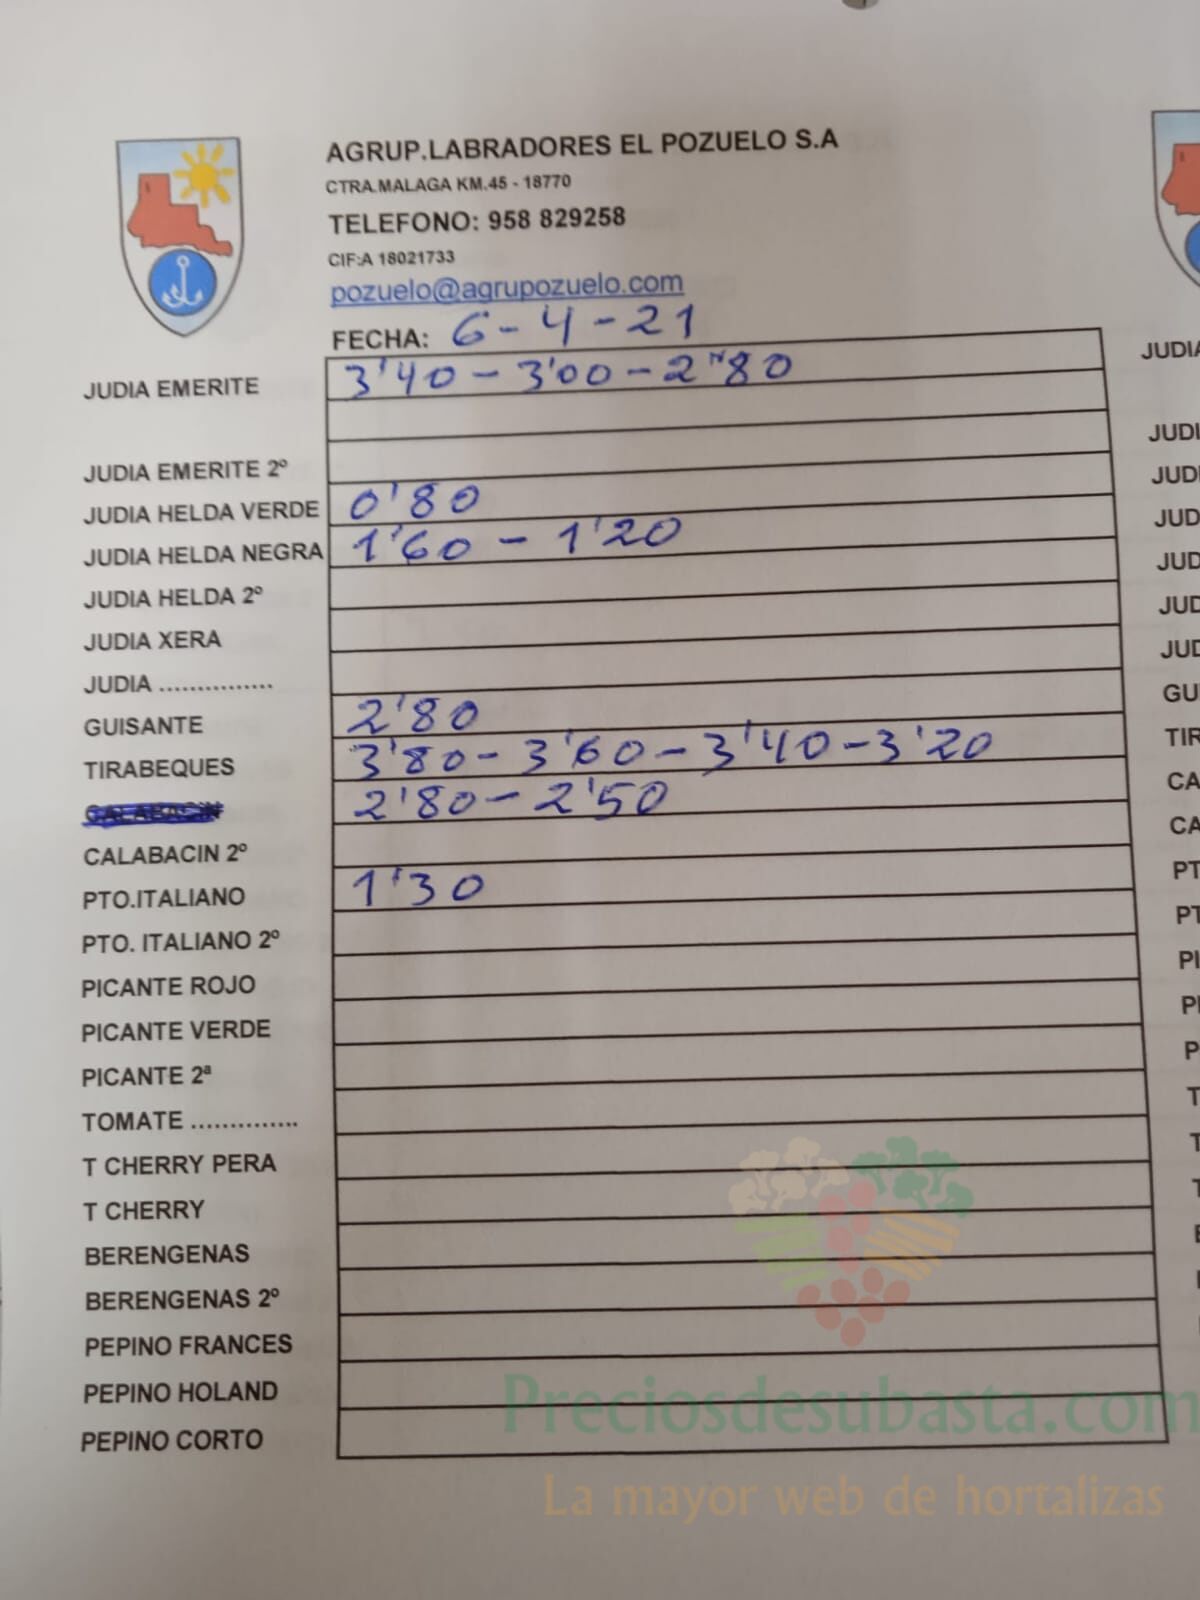 AGRUP.LABRADORES EL POZUELO S.A
CTRA.MALAGA KM.45 - 18770
TELEFONO: 958 829258
CIF:A 18021733
pozuelo@agrupozuelo.com
FECHA: 6-4-21
JUDIA EMERITE 3'40-3'00-2'80
JUDIA EMERITE 2º
JUDIA HELDA VERDE 0'80
JUDIA HELDA NEGRA 1'60-1'20
JUDIA HELDA 2º
JUDIA XERA
JUDIA ...............
GUISANTE 2'80
TIRABEQUES 3'80-3'60-3'40-3'20
CALABACIN 2'80-2'50
CALABACIN 2º
PTO.ITALIANO 1'30
PTO. ITALIANO 2º
PICANTE ROJO
PICANTE VERDE
PICANTE 2ª
TOMATE ..............
T CHERRY PERA
T CHERRY
BERENGENAS
BERENGENAS 2º
PEPINO FRANCES
PEPINO HOLAND
PEPINO CORTO
Preciosdesubasta.com
La mayor web de hortalizas